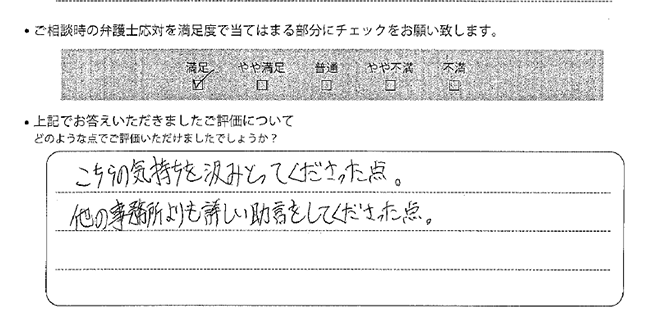 • ご相談時の弁護士応対を満足度で当てはまる部分にチェックをお願い致します。
満足 やや満足 普通 やや不満 不満
☑ □ □ □ □
• 上記でお答えいただきましたご評価について
どのような点でご評価いただけましたでしょうか？
こちらの気持ちを汲みとってくださった点。
他の事務所よりも詳しい助言をしてくださった点。